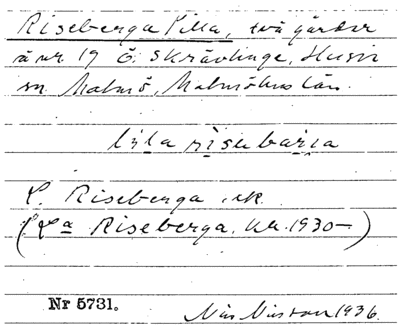 Riseberga Lilla, två gårdar
å nr 19 Ö. Skrävlinge, Husie
sn Malmö, Malmöhus län.
lịla risabaria
L. Riseberga, ek.
(La Riseberga, kr. 1930-)
Nr 5731.
Nils Nilsson 1936.